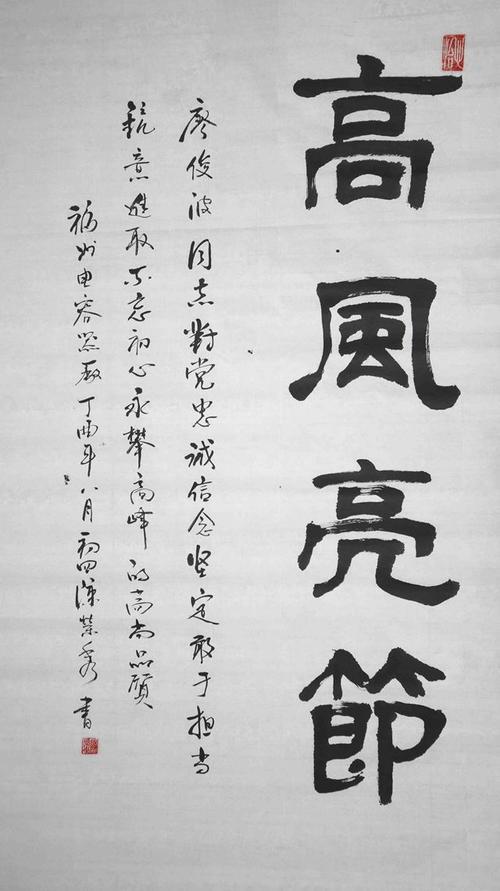 高風亮節
廖俊波同志對党忠诚信念坚定敢于担当
锐意進取不忘初心永攀高峰的高尚品質
福州电容器廠丁酉年八月初四陳榮秀書